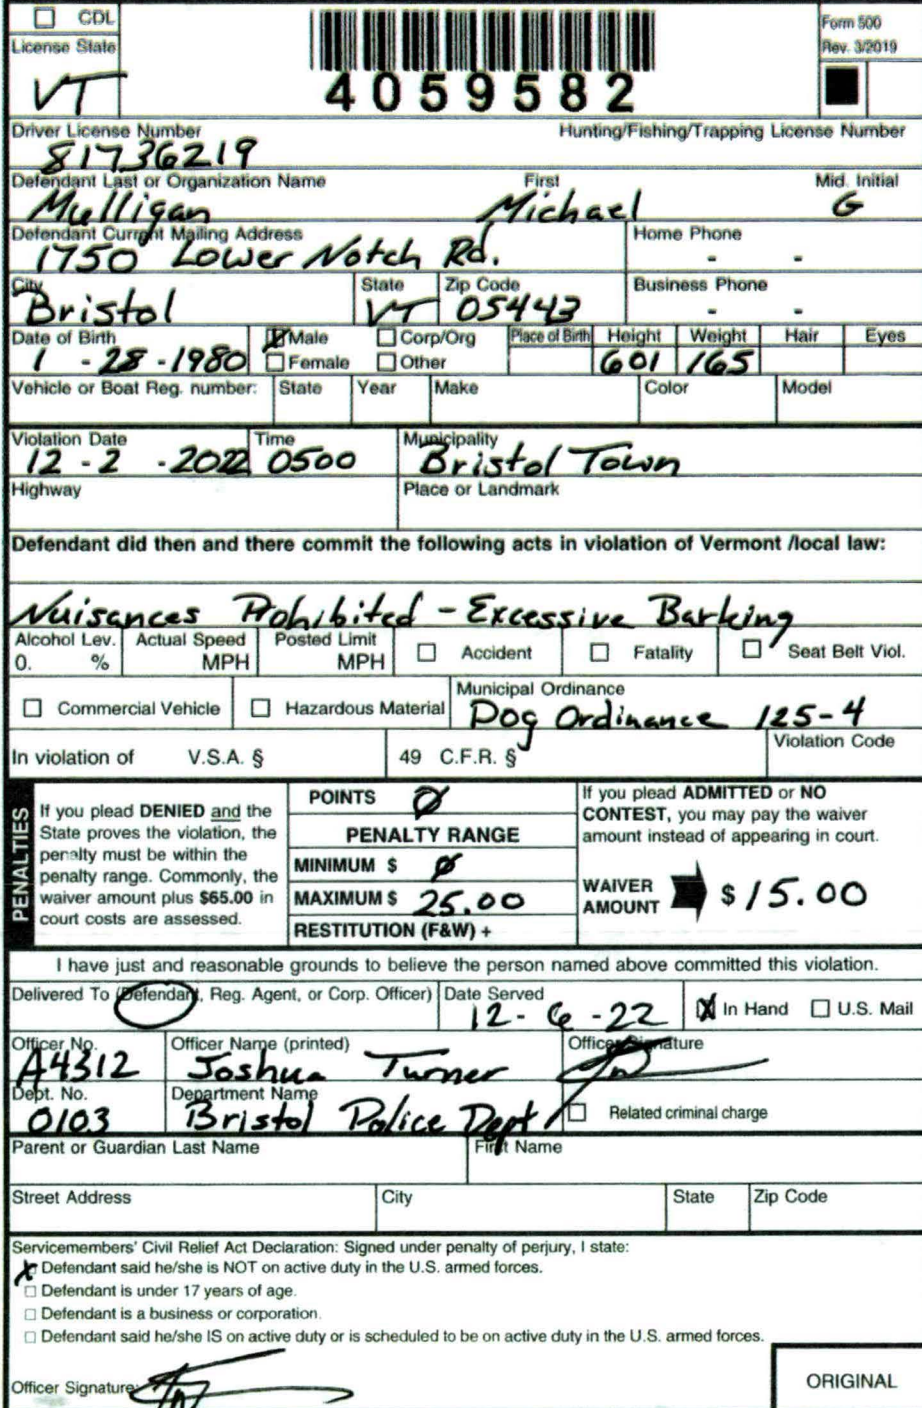 CDL
Form 500
License State
Rev. 3/2019
VT
4059582
Driver License Number Hunting/Fishing/Trapping License Number
81736219
Defendant Last or Organization Name First Mid. Initial
Mulligan Michael G
Defendant Current Mailing Address Home Phone
1750 Lower Notch Rd. - -
City State Zip Code Business Phone
Bristol VT 05443 - -
Date of Birth Male Corp/Org Place of Birth Height Weight Hair Eyes
1 - 28 - 1980 Female Other 601 165
Vehicle or Boat Reg. number: State Year Make Color Model
Violation Date Time Municipality
12 - 2 - 2022 0500 Bristol Town
Highway Place or Landmark
Defendant did then and there commit the following acts in violation of Vermont /local law:
Nuisances Prohibited - Excessive Barking
Alcohol Lev. Actual Speed Posted Limit
0. % MPH MPH Accident Fatality Seat Belt Viol.
Municipal Ordinance
Commercial Vehicle Hazardous Material Dog Ordinance 125-4
Violation Code
In violation of V.S.A. § 49 C.F.R. §
PENALTIES
If you plead DENIED and the
State proves the violation, the
penalty must be within the
penalty range. Commonly, the
waiver amount plus $65.00 in
court costs are assessed.
POINTS 0
PENALTY RANGE
MINIMUM $ 0
MAXIMUM $ 25.00
RESTITUTION (F&W) +
If you plead ADMITTED or NO
CONTEST, you may pay the waiver
amount instead of appearing in court.
WAIVER
AMOUNT $ 15.00
I have just and reasonable grounds to believe the person named above committed this violation.
Delivered To (Defendant, Reg. Agent, or Corp. Officer) Date Served
12 - 6 - 22 X In Hand U.S. Mail
Officer No. Officer Name (printed) Officer Signature
A4312 Joshua Turner
Dept. No. Department Name
0103 Bristol Police Dept Related criminal charge
Parent or Guardian Last Name First Name
Street Address City State Zip Code
Servicemembers' Civil Relief Act Declaration: Signed under penalty of perjury, I state:
X Defendant said he/she is NOT on active duty in the U.S. armed forces.
Defendant is under 17 years of age.
Defendant is a business or corporation.
Defendant said he/she IS on active duty or is scheduled to be on active duty in the U.S. armed forces.
Officer Signature:
ORIGINAL